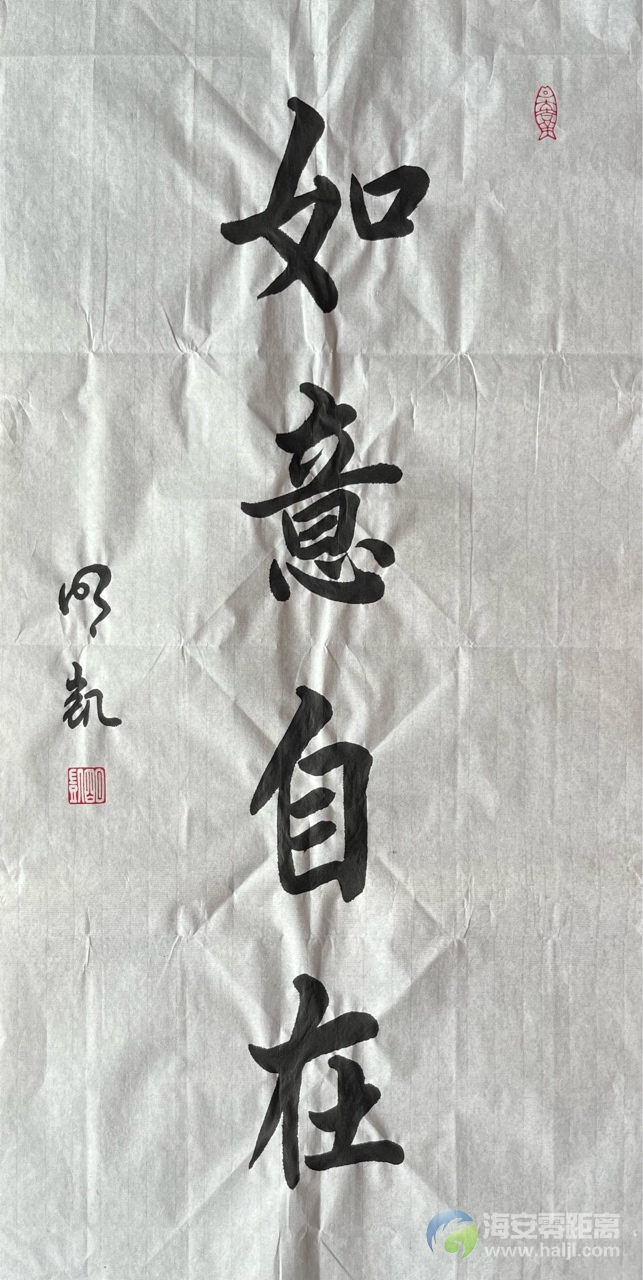 如意自在
明凯
海安零距离
www.haljl.com